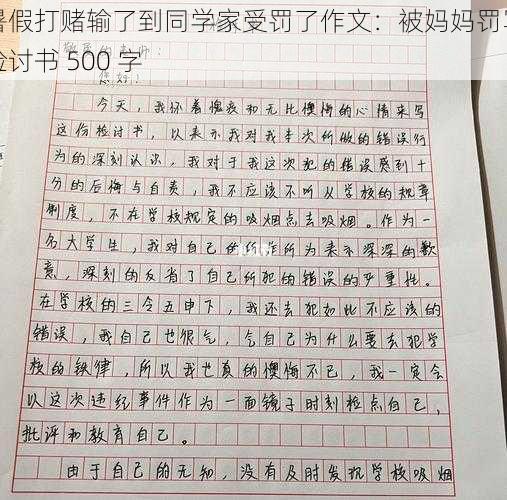 暑假打赌输了到同学家受罚了作文：被妈妈罚写
检讨书 500 字
敬爱的老师：
您好！
今天，我怀着愧疚和无比懊悔的心情来写
这份检讨书，以表示我对我本次所做的错误行
为的深刻认识，我对于我这次犯的错误感到十
分的后悔与自责，我不应该不听从学校的规章
制度，不在学校规定的吸烟点去吸烟。作为一
名大学生，我对自己的所作所为表示深深的歉
意，深刻的反省了自己所犯的错误的严重性。
在学校的三令五申下，我还去犯如此不应该的
错误，我自己也很气，气自己为什么要去犯学
校的铁律，所以我也真的懊悔不已，我一定会
以这次违纪事件作为一面镜子时刻检点自己，
批评和教育自己。
由于自己的无知，没有及时发现学校吸烟